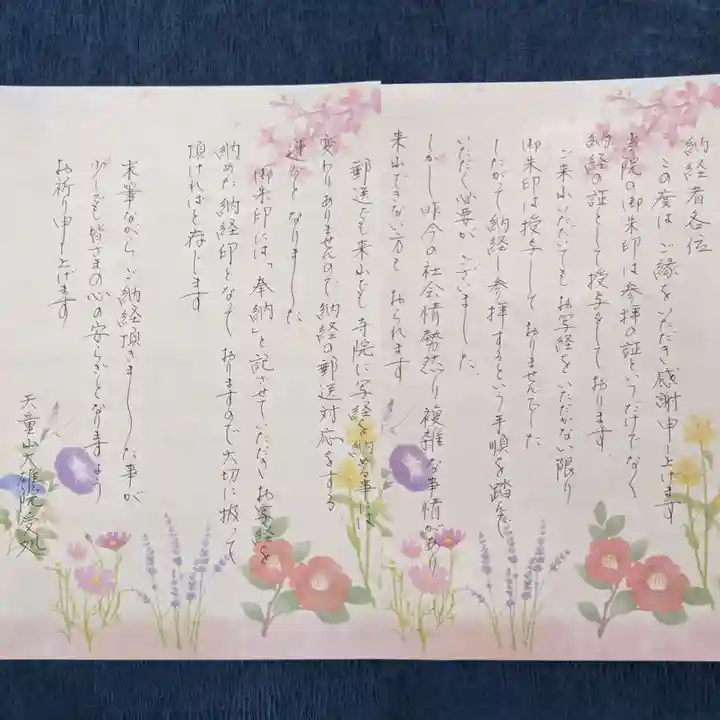 納経者各位
この度はご縁をいただき感謝申し上げます
寺院の御朱印は参拝の証というだけでなく
納経の証として授与をしております。
ご来山いただいてもお写経をいただかない限り
御朱印は授与しておりませんでした
したがって納経し参拝するという手順を踏んで
いただく必要がございました。
しかし昨今の社会情勢然り複雑な事情があり
来山できない方もおられます
郵送でも来山でも寺院に写経を納める事には
変わりありませんので納経の郵送対応をする
運びとなりました
御朱印には「奉納」と記させていただきお写経を
納めた納経印となっておりますので大切に扱って
頂ければと存じます
末筆ながらご納経頂きました事が
少しでも皆さまの心の安らぎとなりますよう
お祈り申し上げます
天童山大雄院